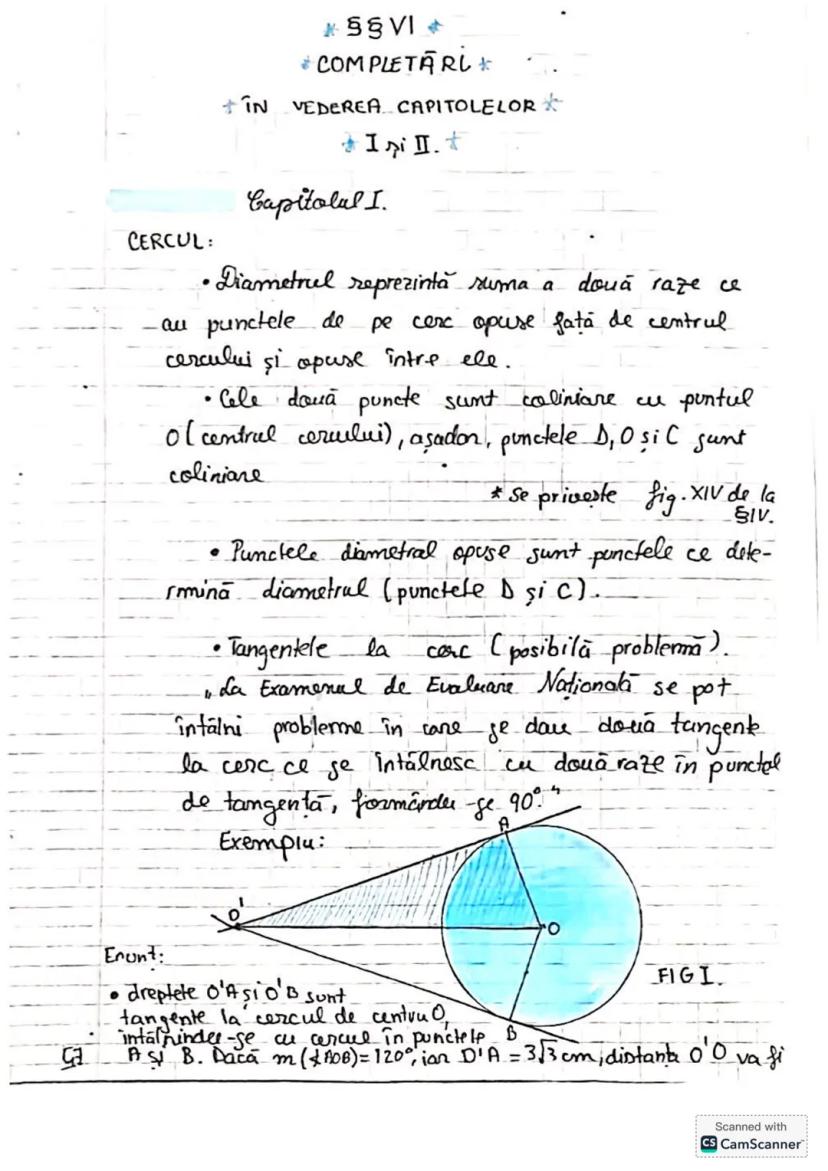 §§VI
COMPLETĂRI
ÎN VEDEREA CAPITOLELOR
I și II.
Capitolul I.
CERCUL:
• Diametrul reprezintă suma a două raze ce
au punctele de pe cerc opuse față de centrul
cercului și opuse între ele.
• Cele două puncte sunt coliniare cu puntul
O (centrul cercului), așadar, punctele D, O și C sunt
coliniare
* Se privește fig. XIV de la
§IV.
• Punctele diametral opuse sunt punctele ce dete-
rmină diametrul (punctele D și C).
• Tangentele la cerc (posibilă problemă).
„La Examenul de Evaluare Națională se pot
întâlni probleme în care se dau două tangente
la cerc ce se întâlnesc cu două raze în punctul
de tangență, formându-se 90°."
Exemplu:
A
O'
O
Enunț:
FIG I.
• dreptele O'A și O'B sunt
tangente la cercul de centru O,
întâlnindu-se cu cercul în punctele
B
A și B. Dacă m(∢AOB)=120°, iar O'A = 3√3 cm, distanța O'O va fi
Scanned with
CS CamScanner